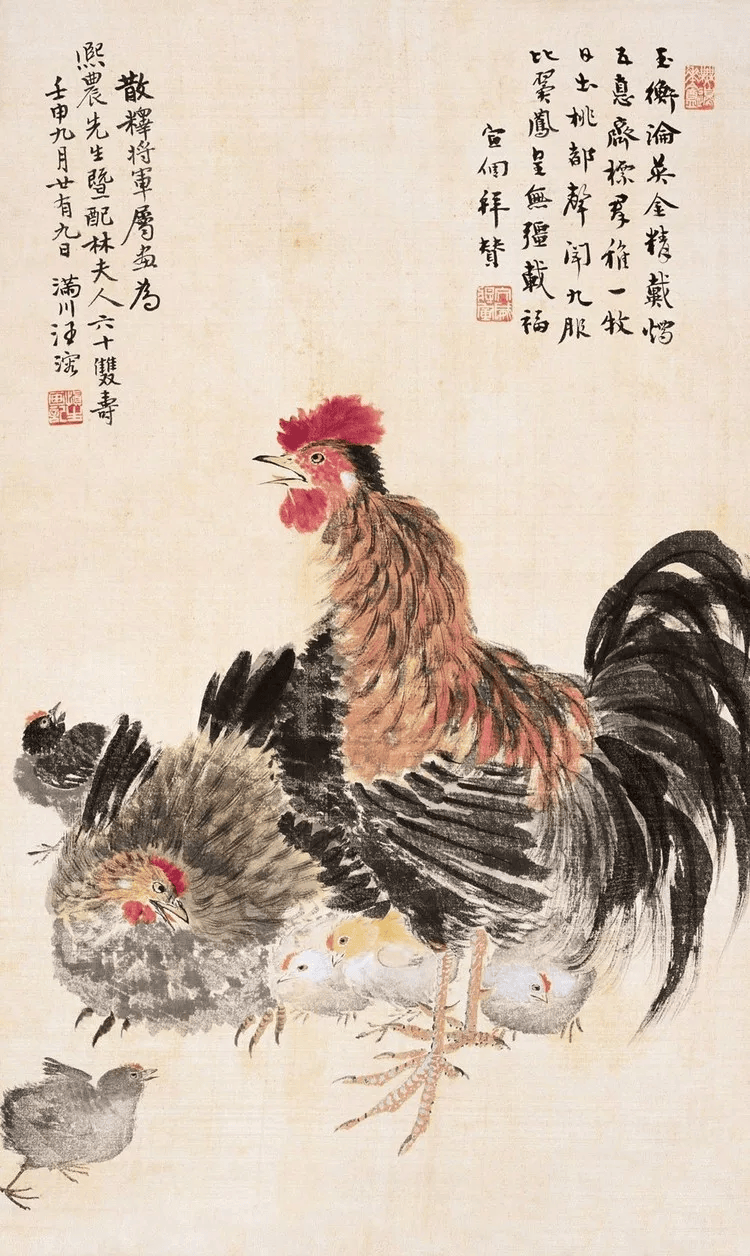 玉衡淪英金精戴燭
五悳齊標羣稚一牧
日出桃都聲聞九服
比翼鳳呈無疆載福
宣倜拜贊
散釋將軍屬畫為
熙農先生暨配林夫人六十雙壽
壬申九月廿有九日 滿川汪溶